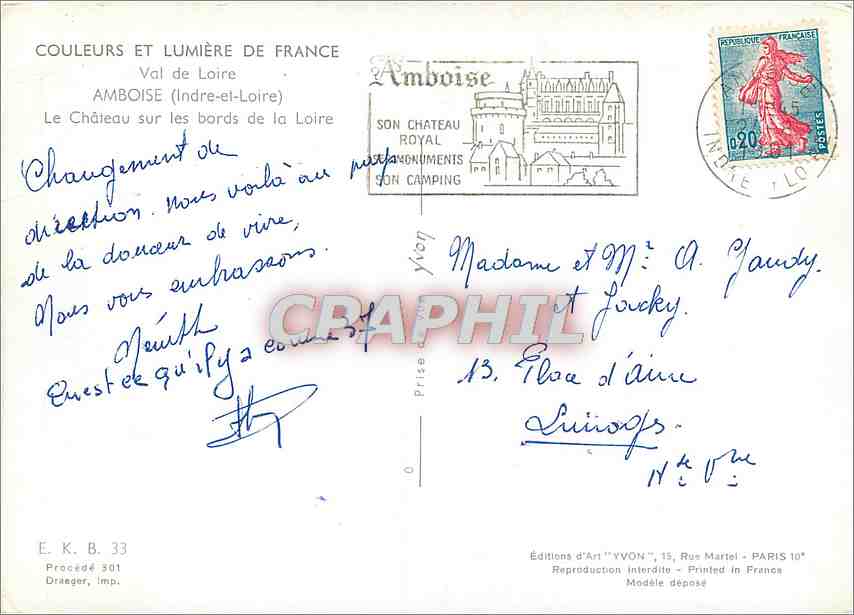 COULEURS ET LUMIÈRE DE FRANCE
Val de Loire
AMBOISE (Indre-et-Loire)
Le Château sur les bords de la Loire
Changement de
direction. Nous voilà au pays
de la douceur de vivre,
Nous vous embrassons.
Qu'est ce qu'il y a comme 57
E. K. B. 33
Procédé 301
Draeger, Imp.
Amboise
SON CHATEAU
ROYAL
SES MONUMENTS
SON CAMPING
REPUBLIQUE FRANÇAISE
0,20
POSTES
INDRE
Yvon
Prise de vue
CPARPHIL
Madame et Mr. A. Jaudy.
et Jacky.
13. Place d'Aine
Limoges.
Hte Vne
Éditions d'Art "YVON", 15, Rue Martel - PARIS 10e
Reproduction interdite - Printed in France
Modèle déposé